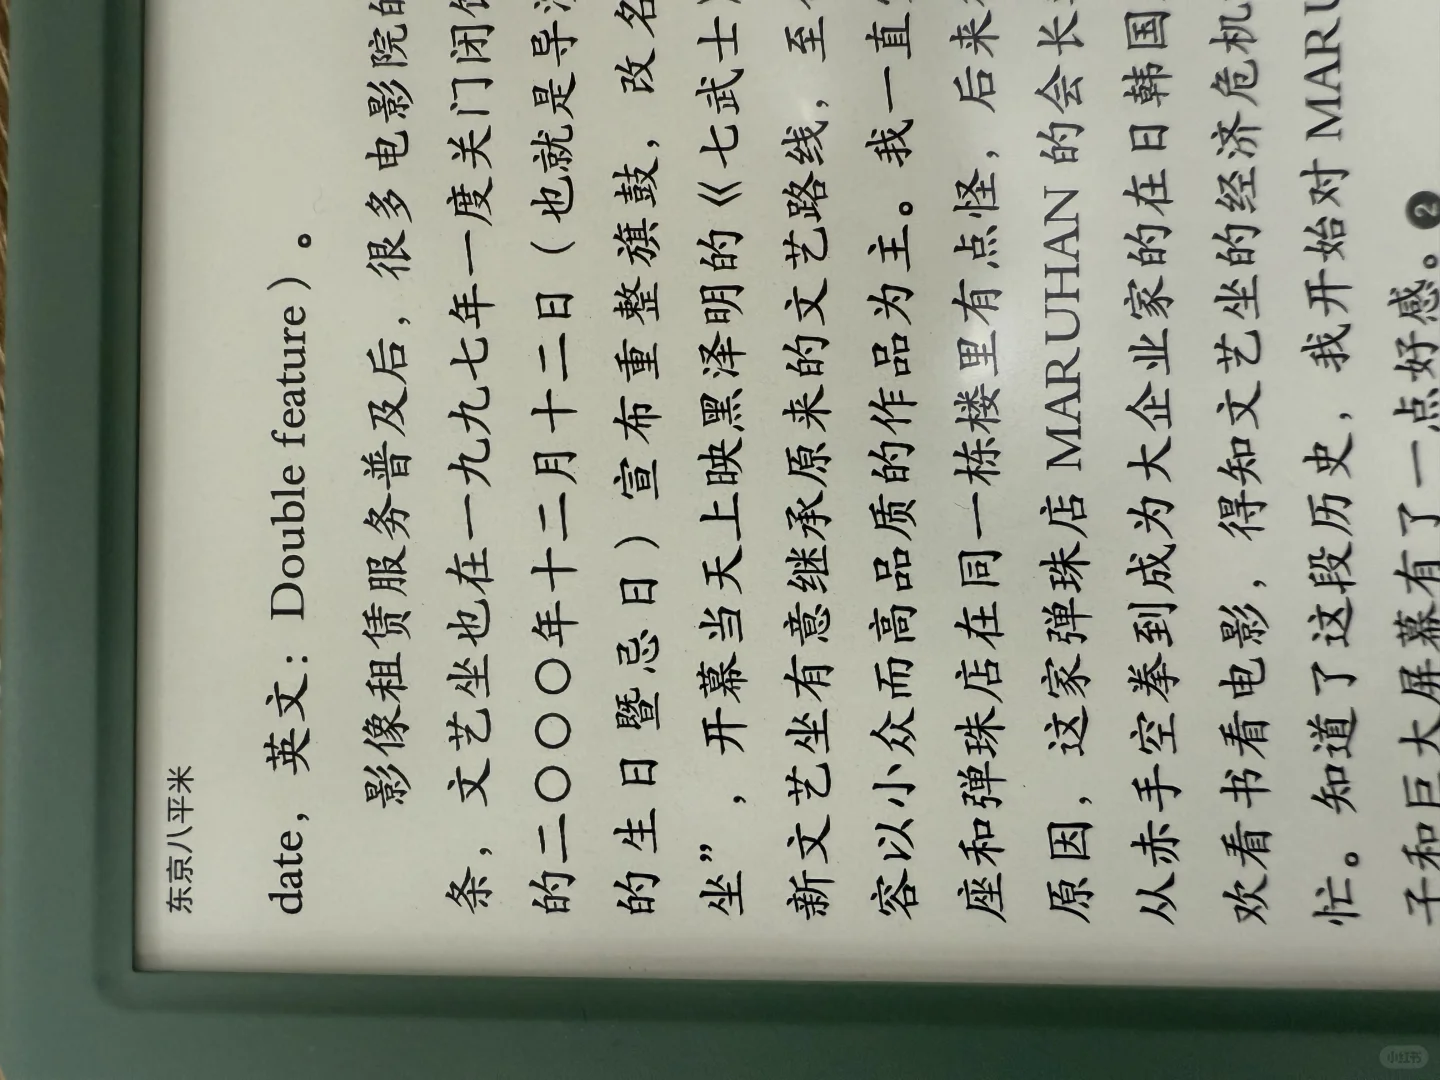 东京八平米
date，英文：Double feature）。
影像租赁服务普及后，很多电影院的
条，文艺坐也在一九九七年一度关门闭
的二〇〇〇年十二月十二日（也就是导
的生日暨忌日）宣布重整旗鼓，改名
坐”，开幕当天上映黑泽明的《七武士
新文艺坐有意继承原来的文艺路线，至
容以小众而高品质的作品为主。我一直
座和弹珠店在同一栋楼里有点怪，后来
原因，这家弹珠店 MARUHAN 的会长
从赤手空拳到成为大企业家的在日韩国
欢看书看电影，得知文艺坐的经济危机
忙。知道了这段历史，我开始对 MARU
子和巨大屏幕有了一点好感。❷
小红书